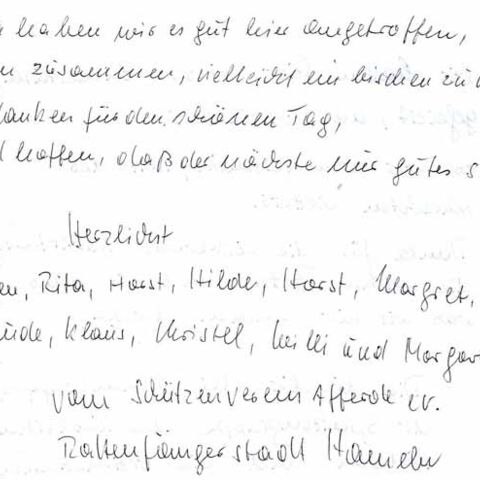 haben wir es gut hier angetroffen,
zusammen, vielleicht ein bischen zu
danken für den schönen Tag,
hoffen, daß der nächste nur gutes
Herzlichst
Rita, Horst, Hilde, Horst, Margret,
Klaus, Christel, Willi und
vom Schützenverein Afferde e.v.
Rattenfängerstadt Hameln